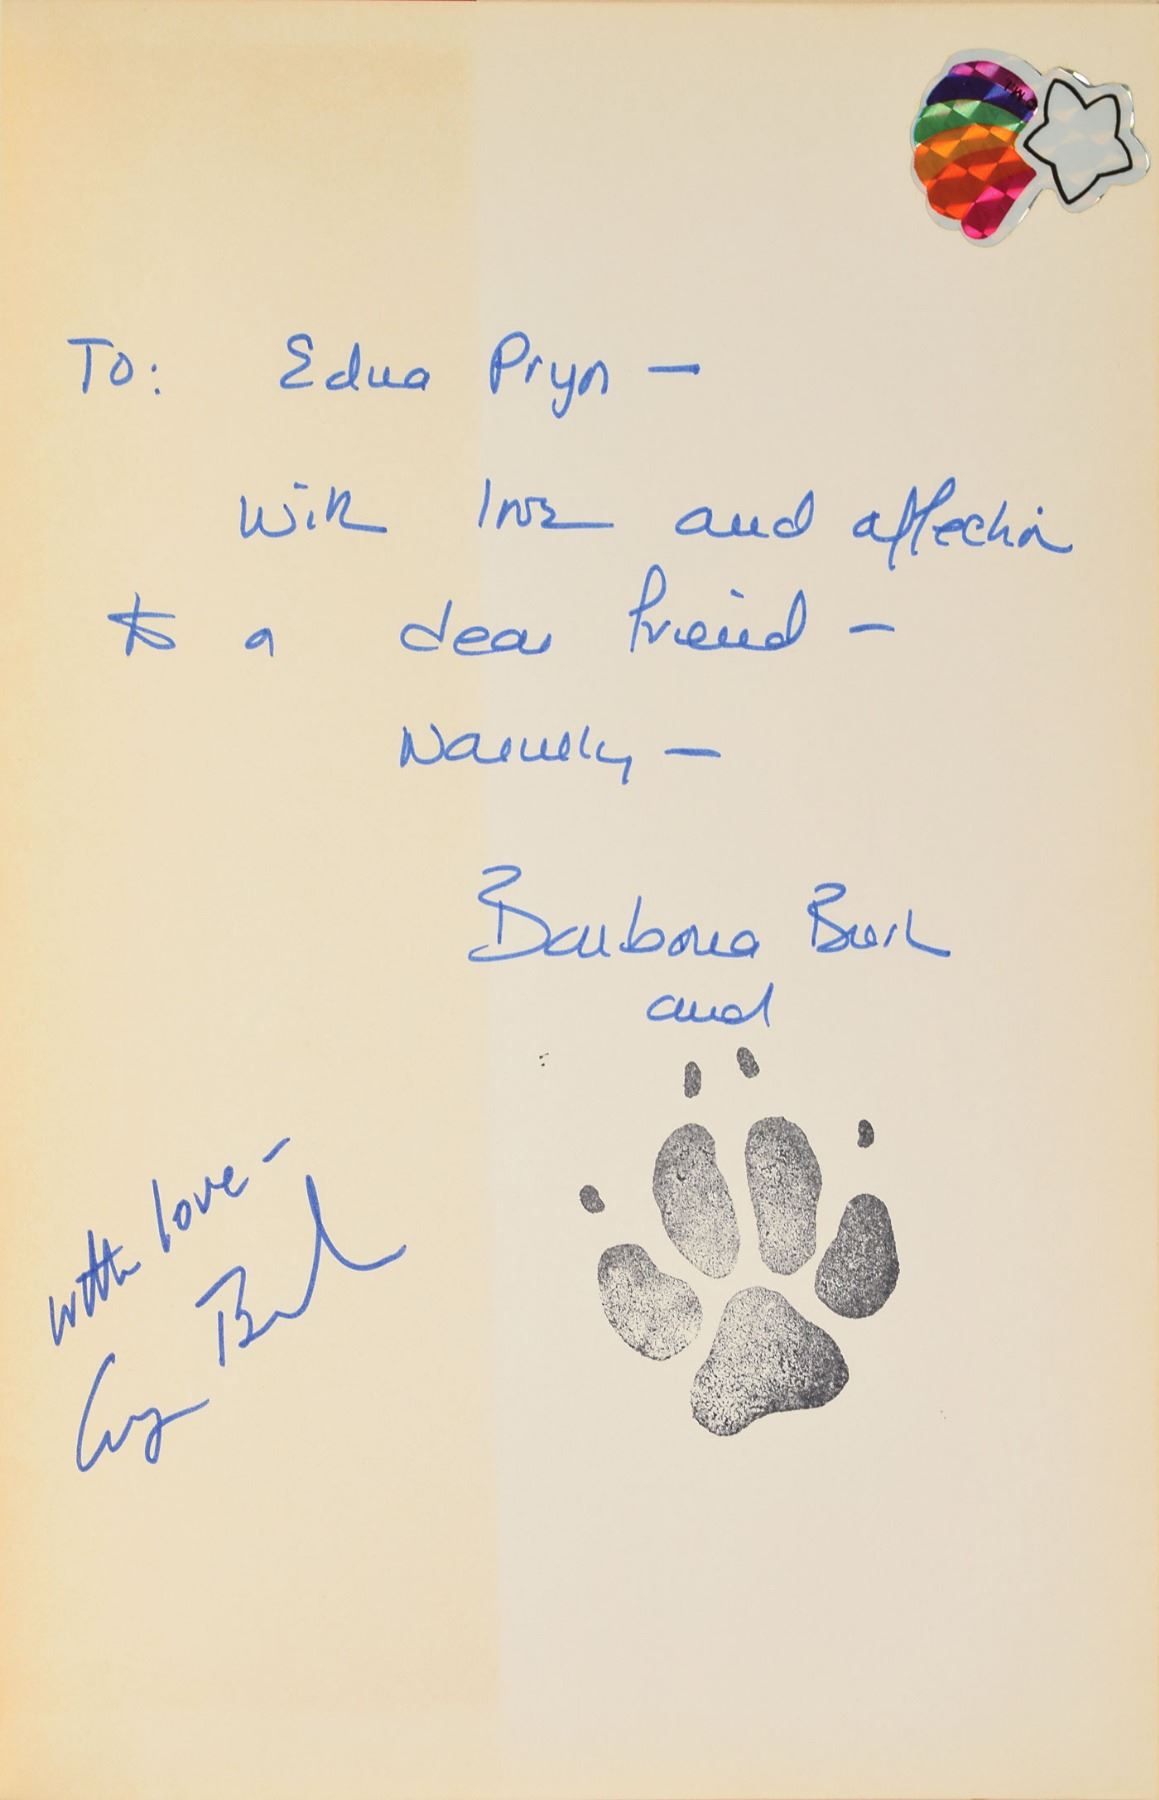 To: Edna Pryn —
with love and affection
to a dear friend —
Warmly —
Barbara Bush
and
with love —
George Bush